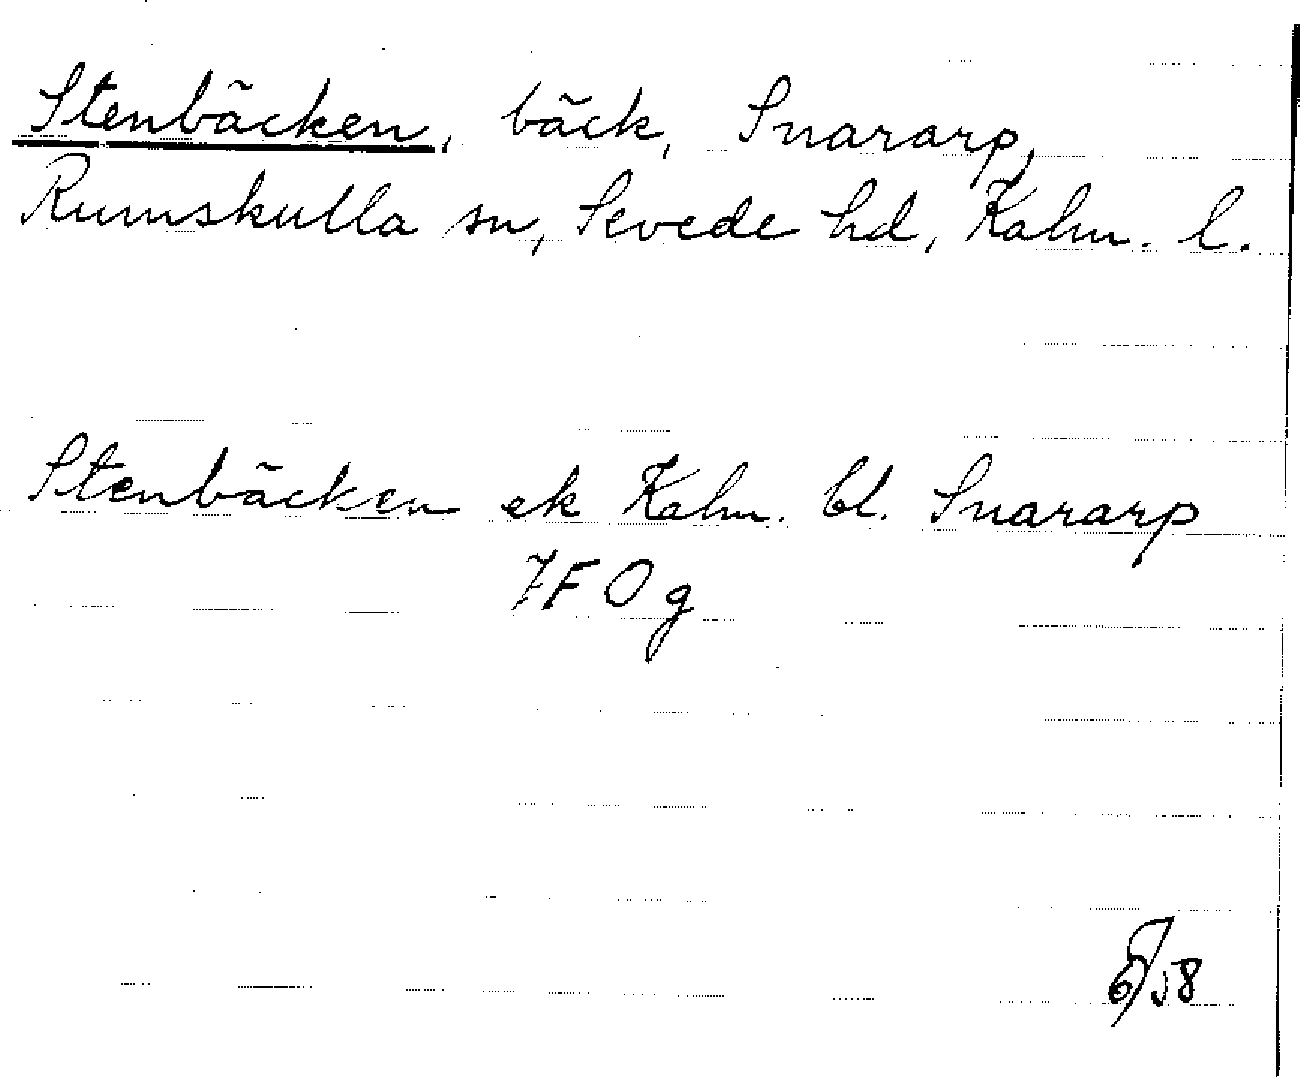 Stenbäcken, bäck, Snararp,
Rumskulla sn, Sevede hd, Kalm. l.
Stenbäcken ek Kalm. bl. Snararp
7F 0 g